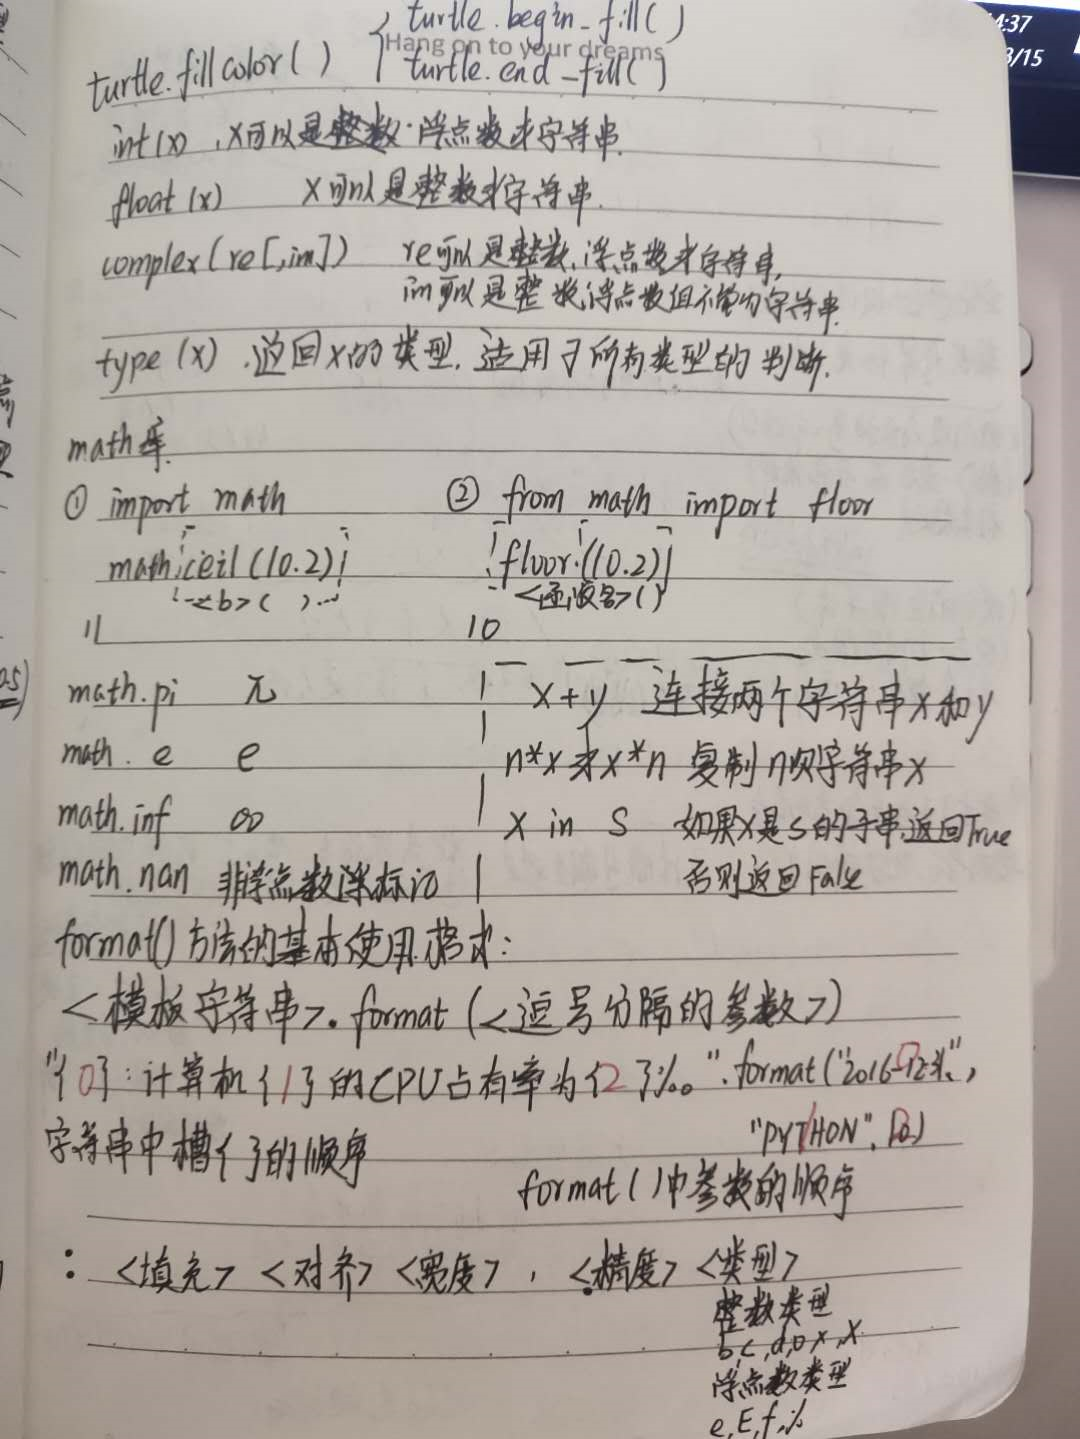 turtle.begin_fill()
Hang on to your dreams
turtle.fillcolor()
turtle.end_fill()
int(x), x可以是整数、浮点数或字符串.
float(x) x可以是整数或字符串.
complex(re[,im]) re可以是整数、浮点数或字符串,
im可以是整数,浮点数但不能为字符串.
type(x).返回x的类型,适用于所有类型的判断.
math库.
① import math ② from math import floor
math.ceil(10.2) floor.(10.2)
<b>( ) <函数名>()
11 10
math.pi π x+y 连接两个字符串x和y
math.e e n*x或x*n 复制n次字符串x
math.inf ∞ x in s 如果x是s的子串,返回True
math.nan 非浮点数标记 否则返回False
format()方法的基本使用格式:
<模板字符串>.format(<逗号分隔的参数>)
"{0}:计算机{1}的CPU占有率为{2}%。".format("2016-12-31",
字符串中槽{}的顺序 "PYTHON", 10)
format()中参数的顺序
: <填充> <对齐> <宽度> , <.精度> <类型>
整数类型
b,c,d,o,x,X
浮点数类型
e,E,f,%
4:37
3/15
0.5)